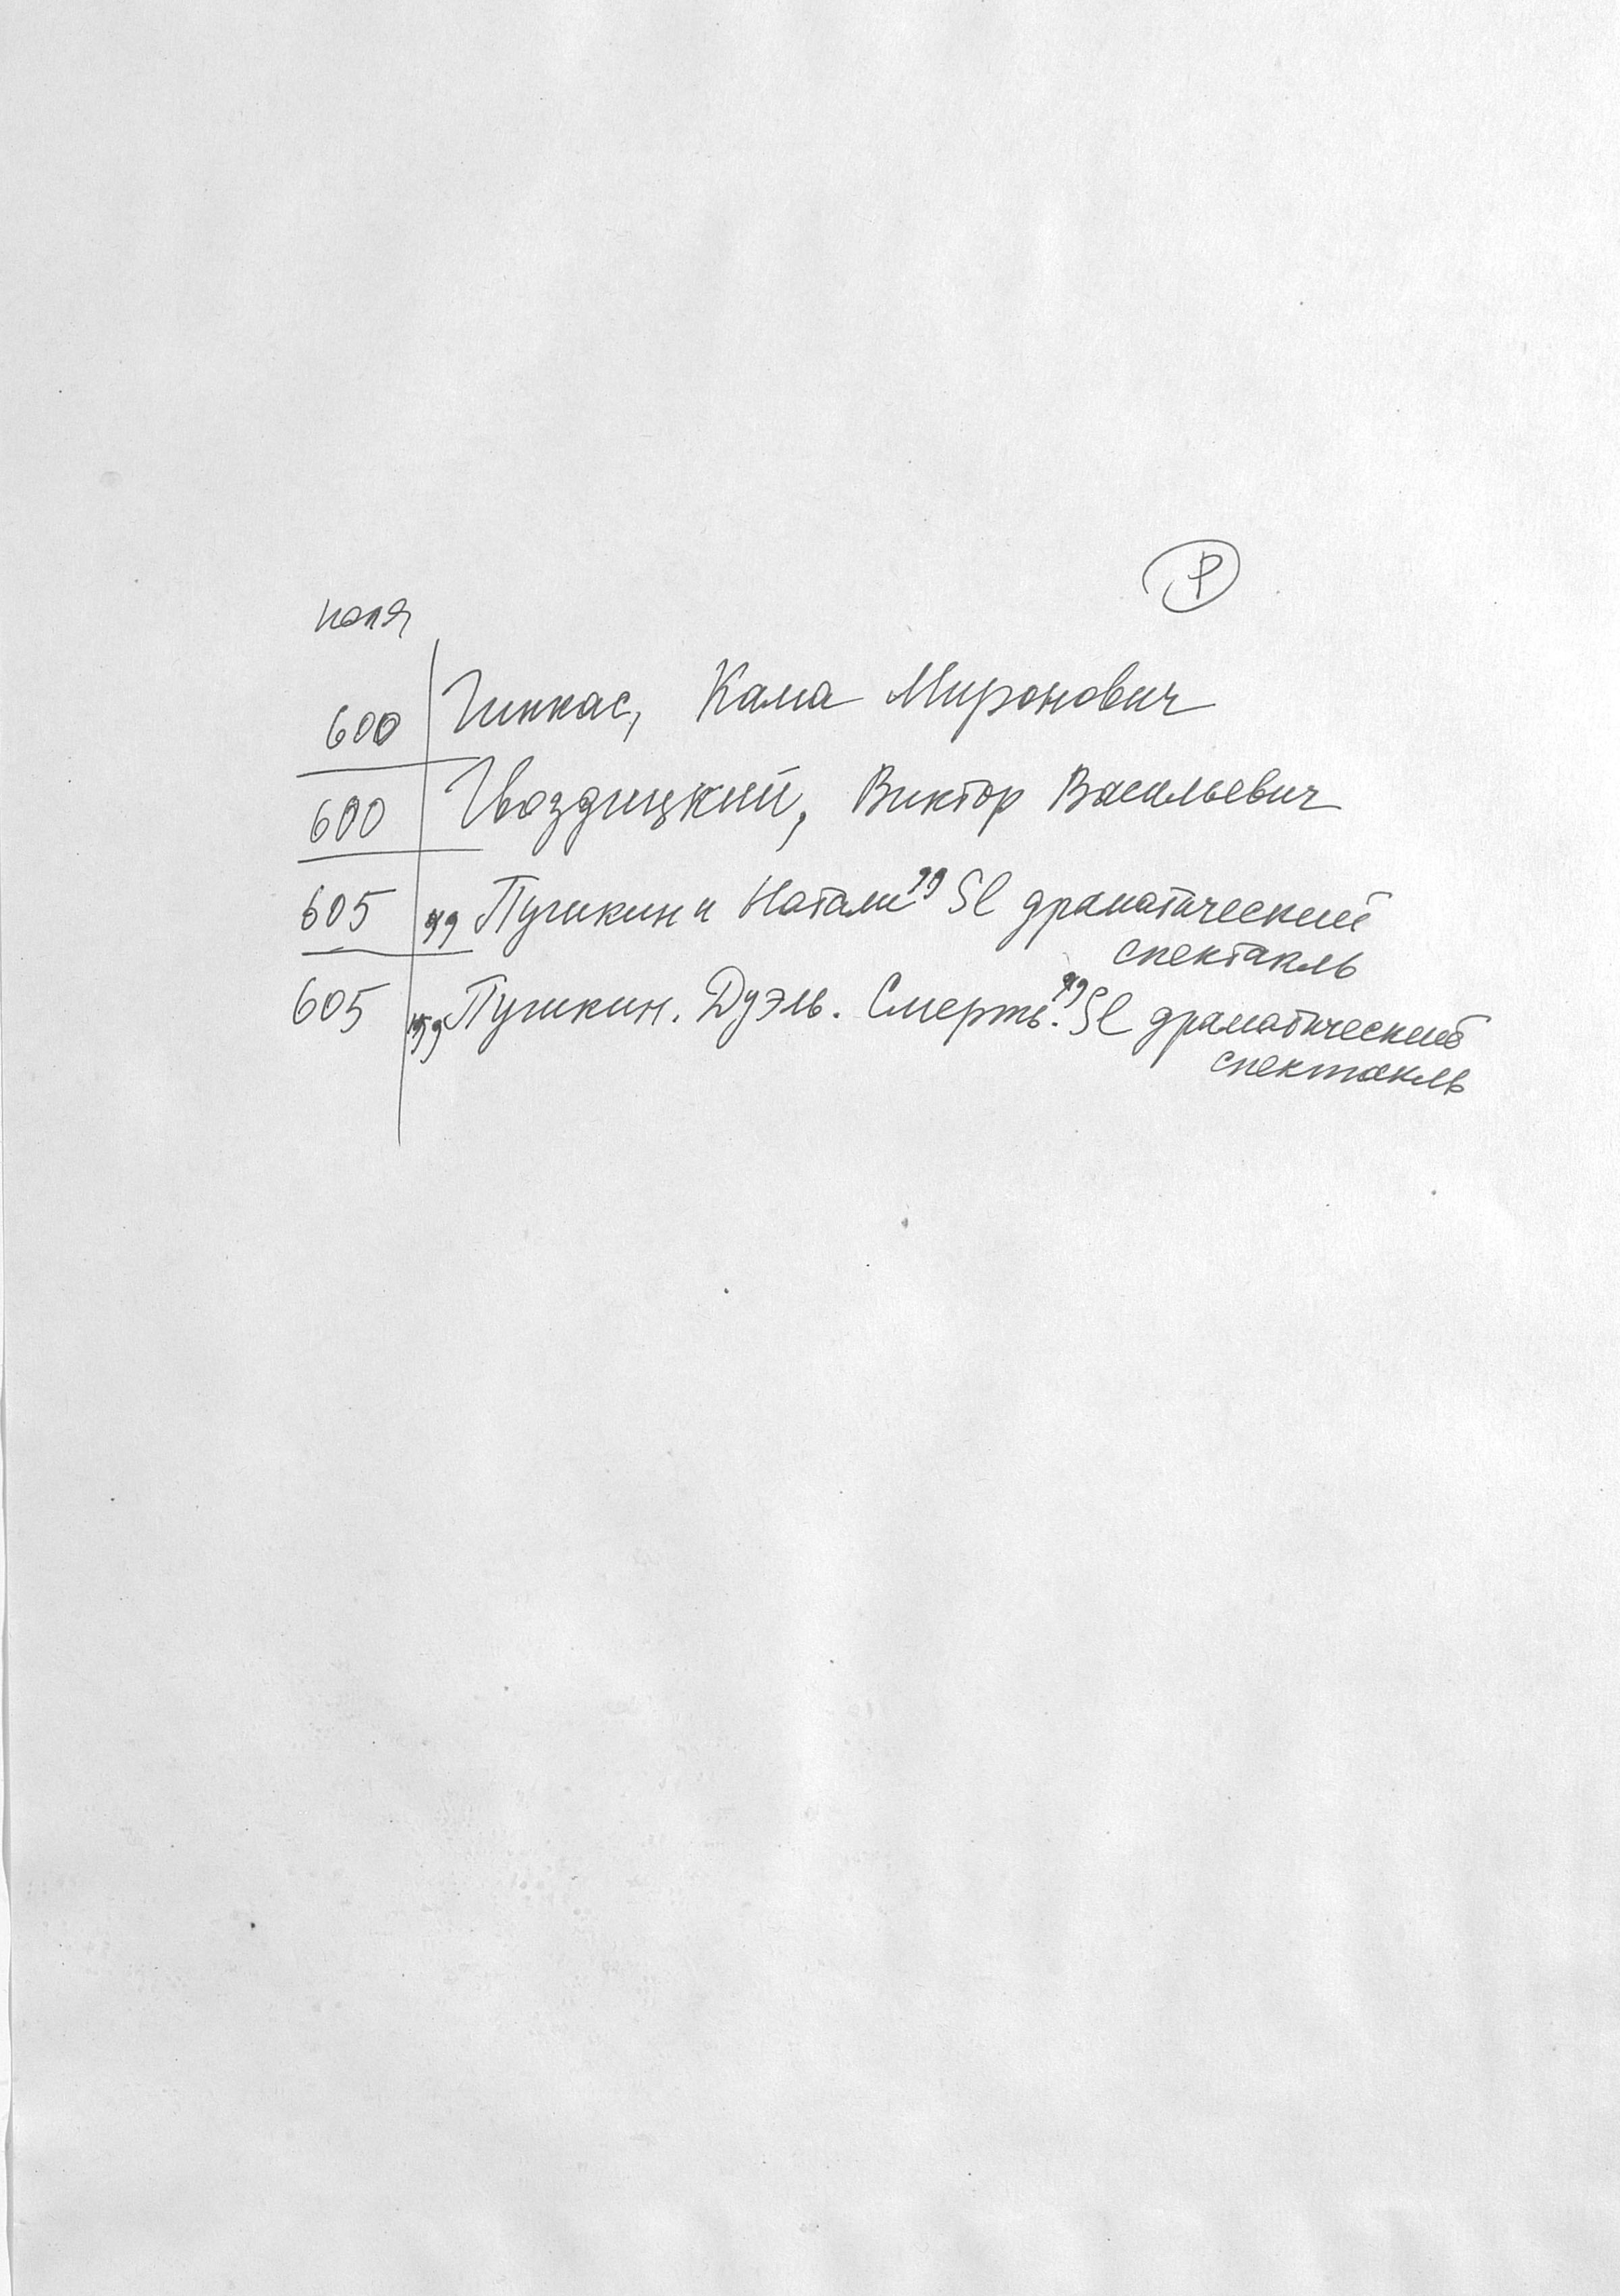 Р
поля
600 Гинкас, Кама Миронович
600 Гвоздицкий, Виктор Васильевич
605 "Пушкин и Натали" $l драматический
спектакль
605 "Пушкин. Дуэль. Смерть." $l драматический
спектакль